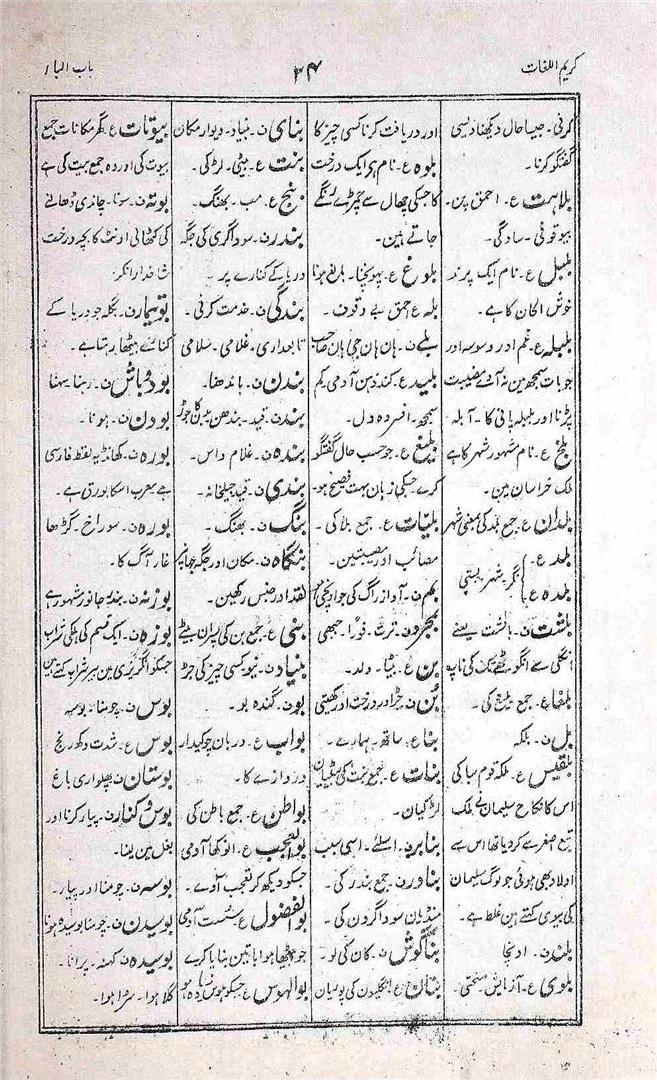 کریم اللغات
۳۴
باب البا
کرنی۔ جیسا حال دیکھنا ویسی
گفتگو کرنا۔
بلاہت ع۔ احمق پن۔
بیوقوفی۔ سادگی۔
بلبل ع۔ نام ایک پرند
خوش الحان کا ہے۔
بلبلہ ع۔ غم اور وسوسہ اور
جو بات سمجھ مین نہ آئے مصیبت
پڑنا اور بلبلہ پانی کا۔ آبلہ
بلخ ع۔ نام مشہور شہر کا ہے
ملک خراسان مین۔
بلدان ع۔ جمع بلد کی بمعنی شہر
بلد ع۔
بلدہ ع
نگر۔ شہر۔ بستی
بلشت ن۔ بالشت یعنے
انگلی سے انگوٹھے تک کی ناپ
بلغا ع۔ جمع بلیغ کی۔
بل ن۔ بلکہ
بلقیس ع۔ ملکہ قوم سبا کی
اس کا نکاح سلیمان نے ملک
تبع سے کر دیا تھا اس سے
اولاد بھی ہوئی جو لوگ سلیمان
کی بیوی کہتے ہین غلط ہے۔
بلند ن۔ اونچا
بلوی ع۔ آزمایش سختی۔
اور دریافت کرنا کسی چیز کا
بلوہ ع۔ نام ہی ایک درخت
کا جسکی چھال سے چمڑے رنگے
جاتے ہین۔
بلوغ ع۔ پہونچنا۔ بالغ ہونا
بلہ ع احمق بے وقوف۔
بلے ن۔ ہان ہان جی ہان صاحب
بلید ع۔ کند ذہن آدمی کم
سمجھ۔ افسردہ دل۔
بلیغ ع۔ جو حسب حال گفتگو
کرے جسکی زبان بہت فصیح ہو۔
بلیات ع۔ جمع بلا کی۔
مصائب اور مصیبتین۔
بم ن۔ آواز راگ کی جو اونچی ہو
بمجرد ن۔ ترت۔ فوراً۔ جبھی
بن ع۔ بیٹا۔ ولد۔
بن ن۔ جڑ اور درخت اور کھیتی
بنا ع۔ ساتھ۔ ہمارے۔
بنات ع۔ جمع بنت کی بیٹیان
لڑکیان۔
بنابر ن۔ اسلئے۔ اسی سبب
بنادر ن۔ جمع بندر کی۔
منڈیان سوداگرون کی۔
بناگوش ن۔ کان کی لو۔
بنان ع۔ انگلیون کی پوریان
بنای ن۔ بنیاد۔ دیوار مکان
بنت ع۔ بیٹی۔ لڑکی۔
بنج ع۔ معرب۔ بھنگ۔
بندر ن۔ سوداگری کی جگہ
دریا کے کنارے پر۔
بندگی ن۔ خدمت کرنی۔
تابعداری۔ غلامی۔ سلامی
بندن ن۔ باندھنا۔
بند ن۔ قید۔ بندھن بدن کا جوڑ
بندہ ن۔ غلام داس۔
بندی ن۔ قید جیلخانہ۔
بنگ ن۔ بھنگ۔
بنگاہ ن۔ مکان اور جگہ جہانپر
نقد اور جنس رکھین۔
بنی ع۔ جمع بن کی پسران بیٹے
بنیاد ن۔ نیو کسی چیز کی جڑ
بو ن۔ گندہ بو۔
بواب ع۔ دربان چوکیدار
دروازے کا۔
بواطن ع۔ جمع باطن کی
بوالعجب ع۔ انوکھا آدمی
جسکو دیکھ کر تعجب آوے۔
بوالفضول ع۔ سست آدمی
جو بیٹھا ہوا باتین بنایا کرے
بوالہوس ع۔ جسکو ہوس زیادہ ہو
بیوتات ع۔ گھر مکانات جمع
بیوت کی اور وہ جمع بیت کی ہے
بوتہ ن۔ سونا۔ چاندی ڈھالنے
کی کٹھالی اونٹ کا بچہ درخت
شاخدار انگر
بوتیمار ن۔ بگلہ جو دریا کے
کنارے بیٹھا رہتا ہے۔
بود و باش ن۔ رہنا سہنا
بودن ن۔ ہونا۔
بورہ ن۔ کھانڈ یہ لفظ فارسی
ہے معرب اسکا بورق ہے۔
بورہ ن۔ سوراخ۔ گڑھا
غار آگ کا۔
بوزنہ ن۔ بندر جانور مشہور ہے
بوزہ ن۔ ایک قسم کی ہلکی شراب
جسکو انگریزی مین بیر شراب کہتے ہین
بوس ن۔ چومنا۔ بوسہ
بوس ع۔ شدت دکھ رنج
بوستان ن۔ پھلواری باغ
بوس و کنار ن۔ پیار کرنا اور
بغل مین لینا۔
بوسہ ن۔ چومنا اور پیار۔
بوسیدن ن۔ چومنا بوسیدہ ہونا
بوسیدہ ن۔ کہنہ۔ پرانا۔
گلا ہوا۔ سڑا ہوا۔